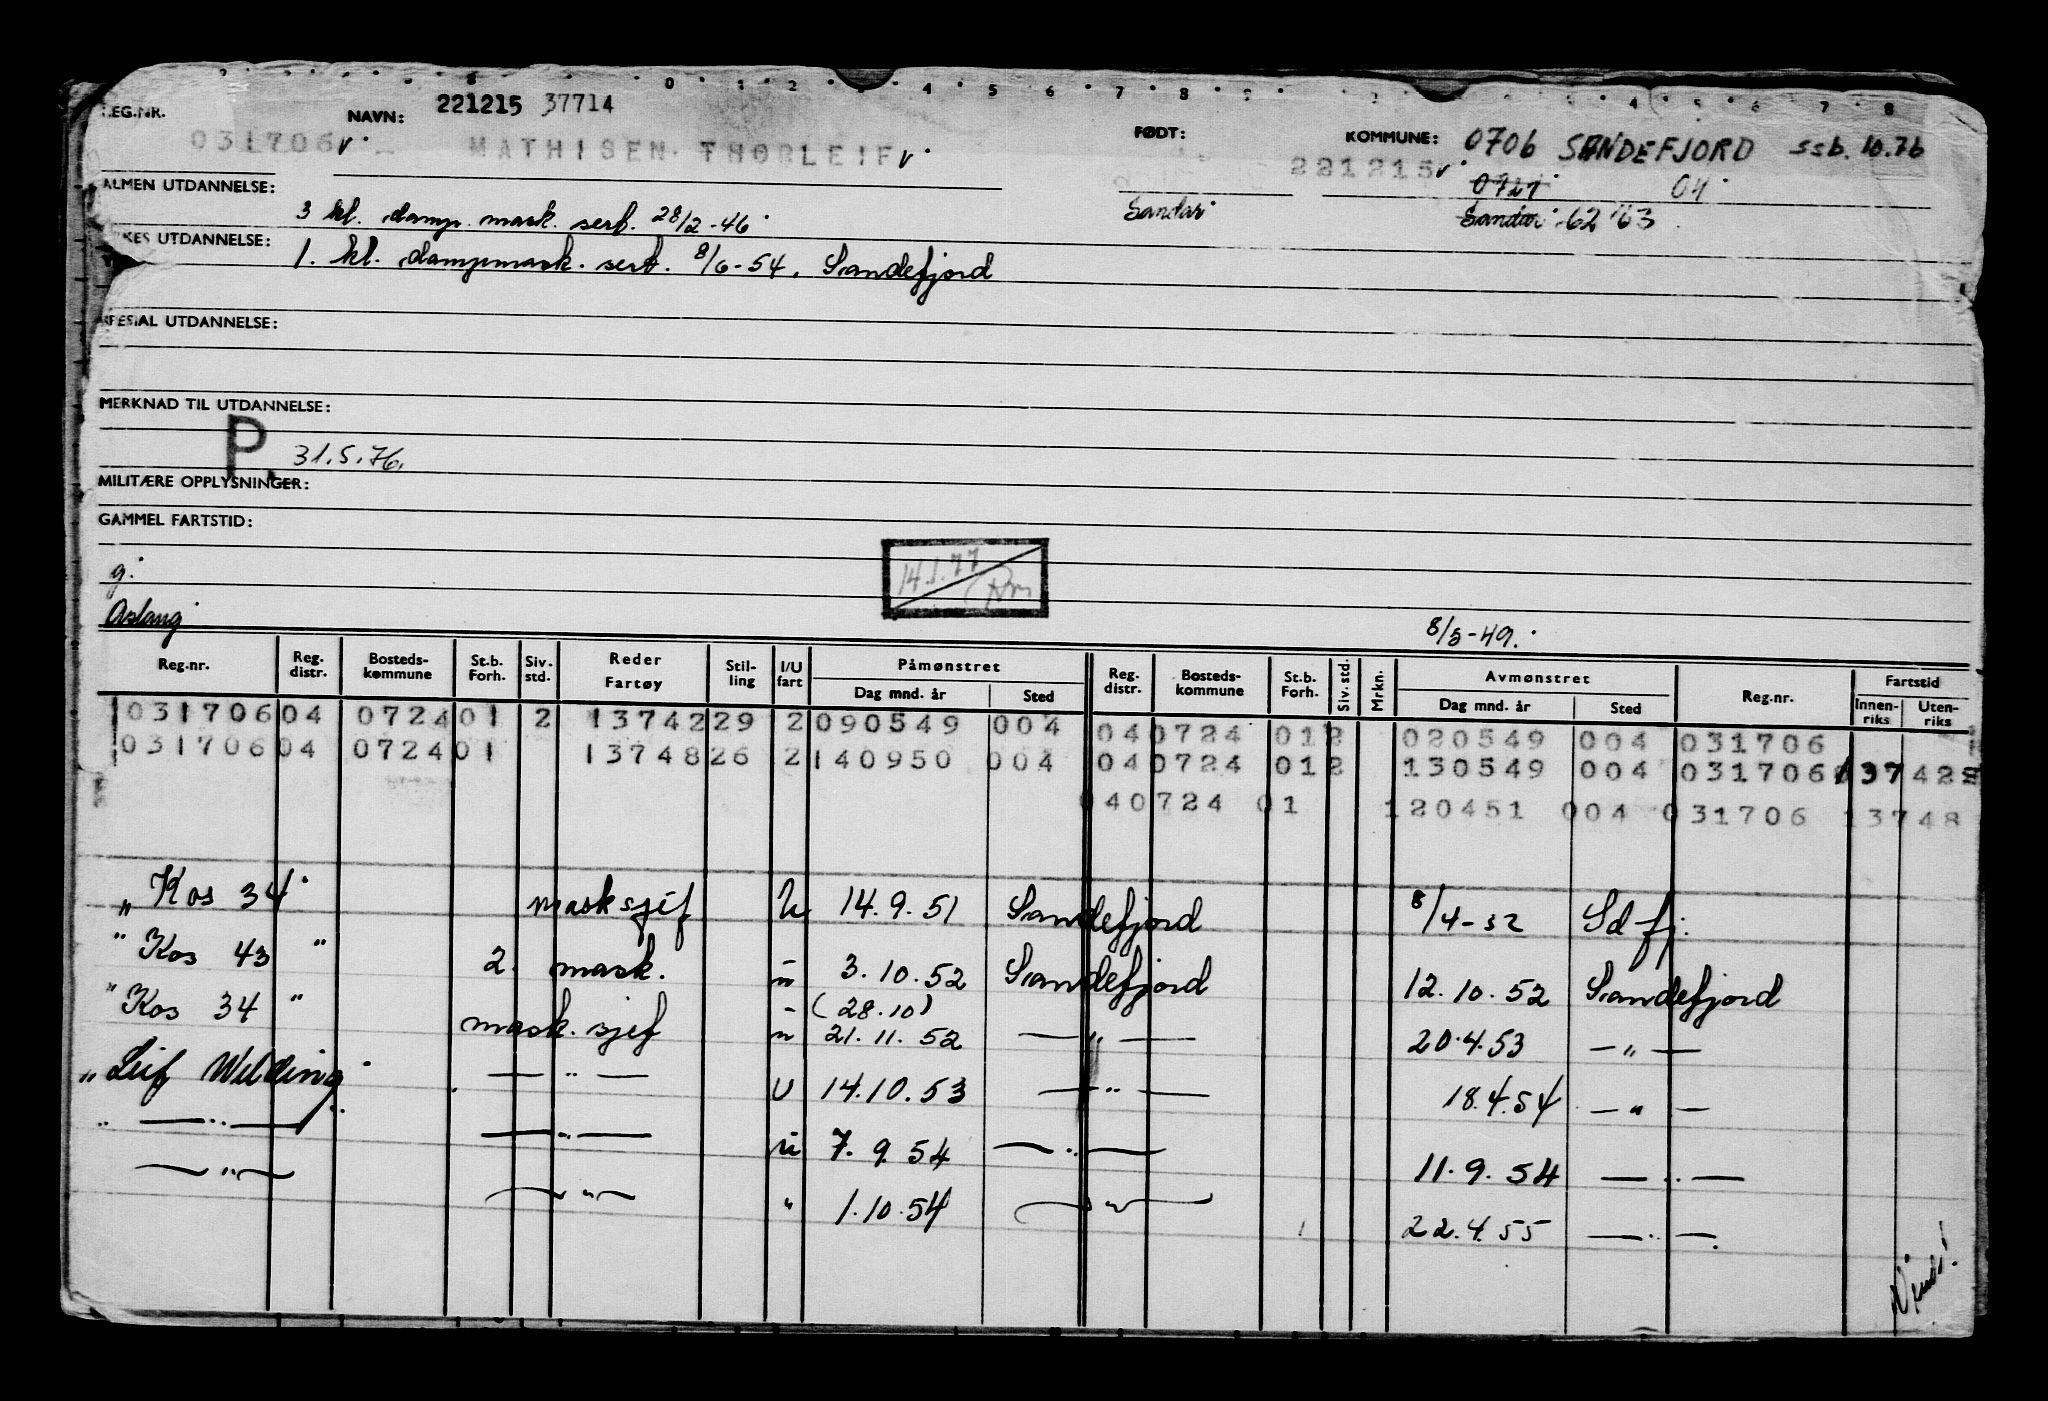 221215 37714
REG.NR.
NAVN:
FØDT:
KOMMUNE: 0706 SANDEFJORD ssb. 10.76
031706 MATHISEN THORLEIF 221215
0721 04
ALMEN UTDANNELSE:
3 kl. damp. mask. sert. 28/2-46
Sandar
Sandar 62 63
YRKES UTDANNELSE:
1. kl. dampmask. sert. 8/6-54. Sandefjord
SPESIAL UTDANNELSE:
MERKNAD TIL UTDANNELSE:
P. 31.5.76.
MILITÆRE OPPLYSNINGER:
GAMMEL FARTSTID:
14.1.77
g.
8/5-49.
Reg.nr. Reg. distr. Bosteds-kommune St.b. Forh. Siv. std. Reder Fartøy Stil-ling I/U fart Påmønstret Dag mnd. år Sted Reg. distr. Bosteds-kommune St.b. Forh. Siv. std. Mrkn. Avmønstret Dag mnd. år Sted Reg.nr. Fartstid Innen-riks Uten-riks
031706 04 0724 01 2 13742 29 2 090549 004 04 0724 01 2 020549 004 031706
031706 04 0724 01 13748 26 2 140950 004 04 0724 01 2 130549 004 031706 13742
04 0724 01 120451 004 031706 13748
" Kos 34 masksjef U 14.9.51 Sandefjord 8/4-52 Sdfj.
" Kos 43 " 2. mask. " 3.10.52 Sandefjord 12.10.52 Sandefjord
" Kos 34 " mask. sjef " (28.10) 21.11.52 — " — 20.4.53 — " —
" Leif Welding — " — U 14.10.53 — " — 18.4.54 — " —
" — " — — " — u 7.9.54 — " — 11.9.54 — " —
— " — — " — " 1.10.54 — " — 22.4.55 — " —.